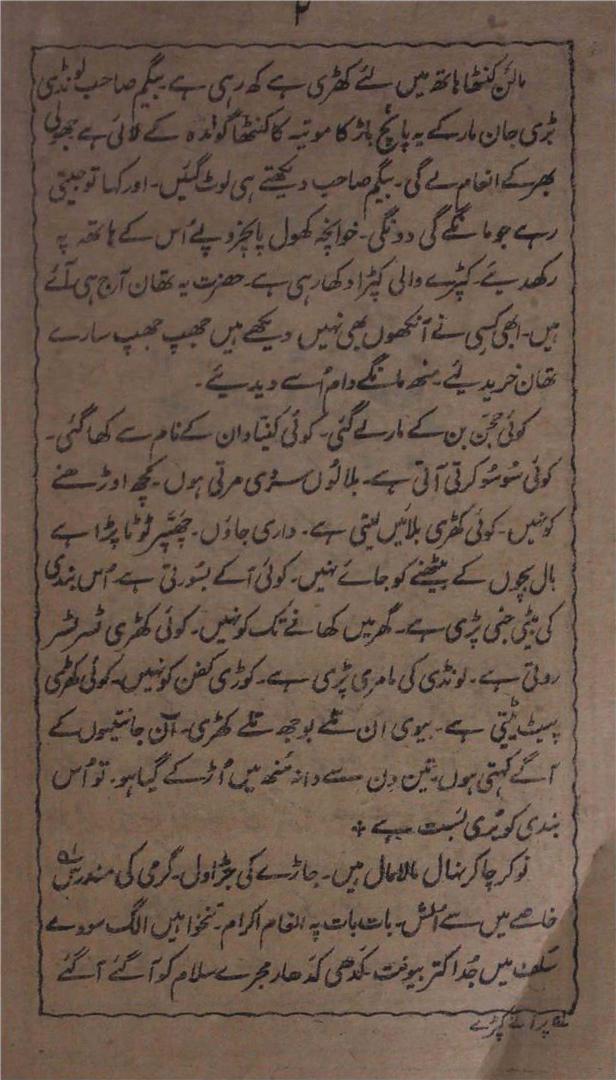 ۲
مالن کنٹھا ہاتھ میں لئے کھڑی ہے کہ رہی ہے۔ بیگم صاحب لونڈی
بڑی جان مار کے یہ پانچ ہاڑ کا موتیہ کا کنٹھا گوندہ کے لائی ہے جھولی
بھر کے انعام لے گی۔ بیگم صاحب دیکھتے ہی لوٹ گئیں۔ اور کہا تو جیتی
رہے جو مانگے گی دونگی۔ خوانچہ کھول پانچ روپے اُس کے ہاتھ پہ
رکھدیئے۔ کپڑے والی کپڑا دکھا رہی ہے۔ حضرت یہ تھان آج ہی آئے
ہیں۔ ابھی کسی نے آنکھوں بھی نہیں دیکھے ہیں جھپ جھپ سارے
تھان خرید لئے۔ منھ مانگے دام اُسے دیدیئے۔
کوئی حجّن بن کے مار لے گئی۔ کوئی کنیادان کے نام سے کھا گئی۔
کوئی سُو سُو کرتی آتی ہے۔ بلا لوں سردی مرتی ہوں۔ کچھ اوڑھنے
کو نہیں۔ کوئی کھڑی بلائیں لیتی ہے۔ واری جاؤں۔ چھپّر ٹوٹا پڑا ہے
بال بچوں کے بیٹھنے کو جائے نہیں۔ کوئی آکے بسُورتی ہے اُس بندی
کی بیٹی جنی پڑی ہے۔ گھر میں کھانے تک کو نہیں۔ کوئی کھڑی ٹسر ٹسر
روتی ہے۔ لونڈی کی ما مری پڑی ہے۔ کوڑی کفن کو نہیں۔ کوئی کھڑی
پیٹ پیٹتی ہے۔ بیوی ان تلے بوجھ تلے کھڑی۔ آن جانتیسوں کے
آگے کہتی ہوں۔ تین دن سے دانہ مُنھ میں اُڑ کے گیا ہو۔ تو اُس
بندی کو بُری نسبت ہے ٭
نوکر چاکر نہال مالامال ہیں۔ جاڑے کی جڑاول۔ گرمی کی
خاصے میں سے اُلش۔ بات بات پہ انعام اکرام۔ تنخواہیں الگ سودے
سلف میں جُدا کتر بیونت کَدھی کدھار مجرے سلام کو آگئے آگئے
لہ پرانے کپڑے